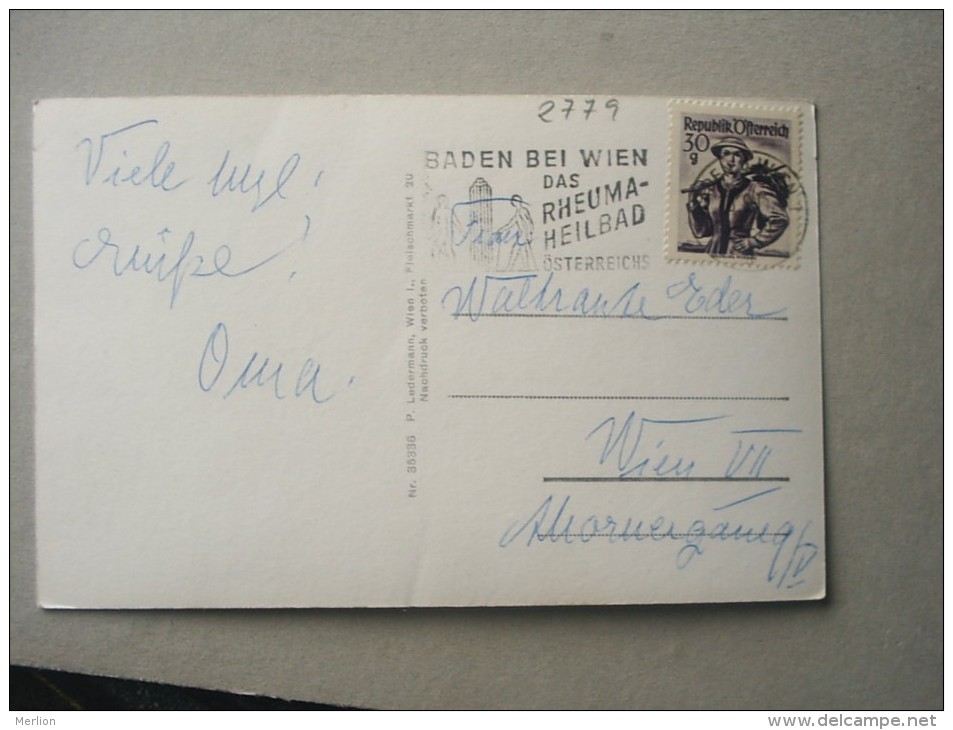 2779
Republik Österreich
30
g
BADEN BEI WIEN
DAS
RHEUMA-
HEILBAD
ÖSTERREICHS
Viele
Grüße!
Oma.
Nr. 35336 P. Ledermann, Wien I., Fleischmarkt 20
Nachdruck verboten
Frau
Waltraute Eder
Wien VII
Merlion
delcampe.net